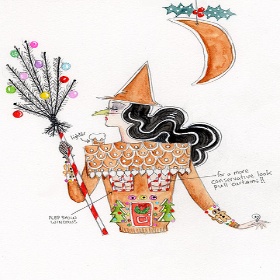 lighter
for a more
conservative look
pull curtains!!
PEEP SHOW
WINDOWS